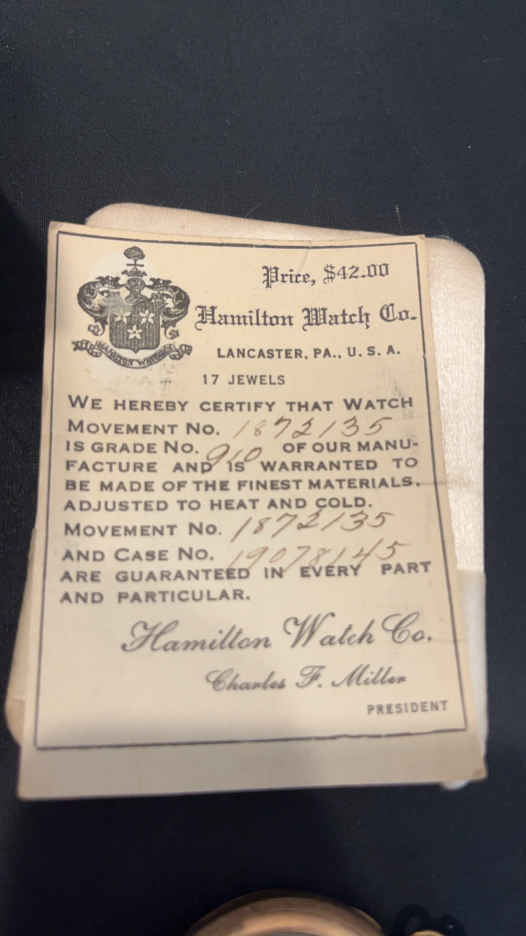 Price, $42.00
Hamilton Watch Co.
LANCASTER, PA., U. S. A.
HAMILTON WATCH
17 JEWELS
WE HEREBY CERTIFY THAT WATCH
MOVEMENT NO. 1872135
IS GRADE NO. 910 OF OUR MANU-
FACTURE AND IS WARRANTED TO
BE MADE OF THE FINEST MATERIALS.
ADJUSTED TO HEAT AND COLD.
MOVEMENT NO. 1872135
AND CASE NO. 19078145
ARE GUARANTEED IN EVERY PART
AND PARTICULAR.
Hamilton Watch Co.
Charles F. Miller
PRESIDENT